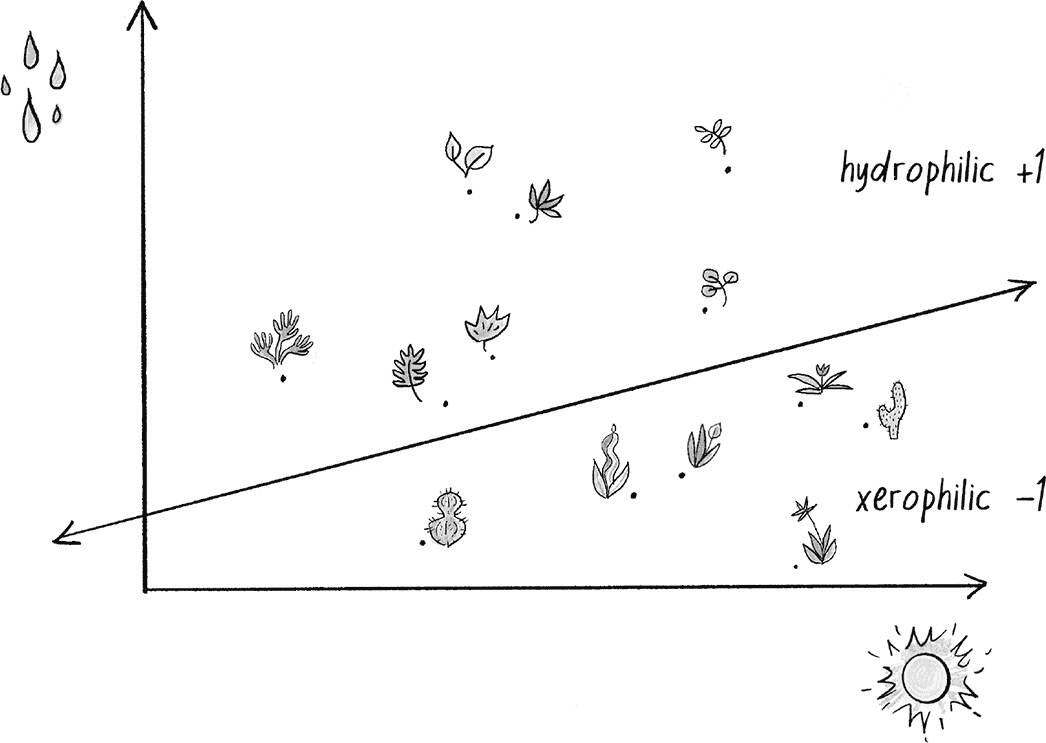 hydrophilic +1
xerophilic -1